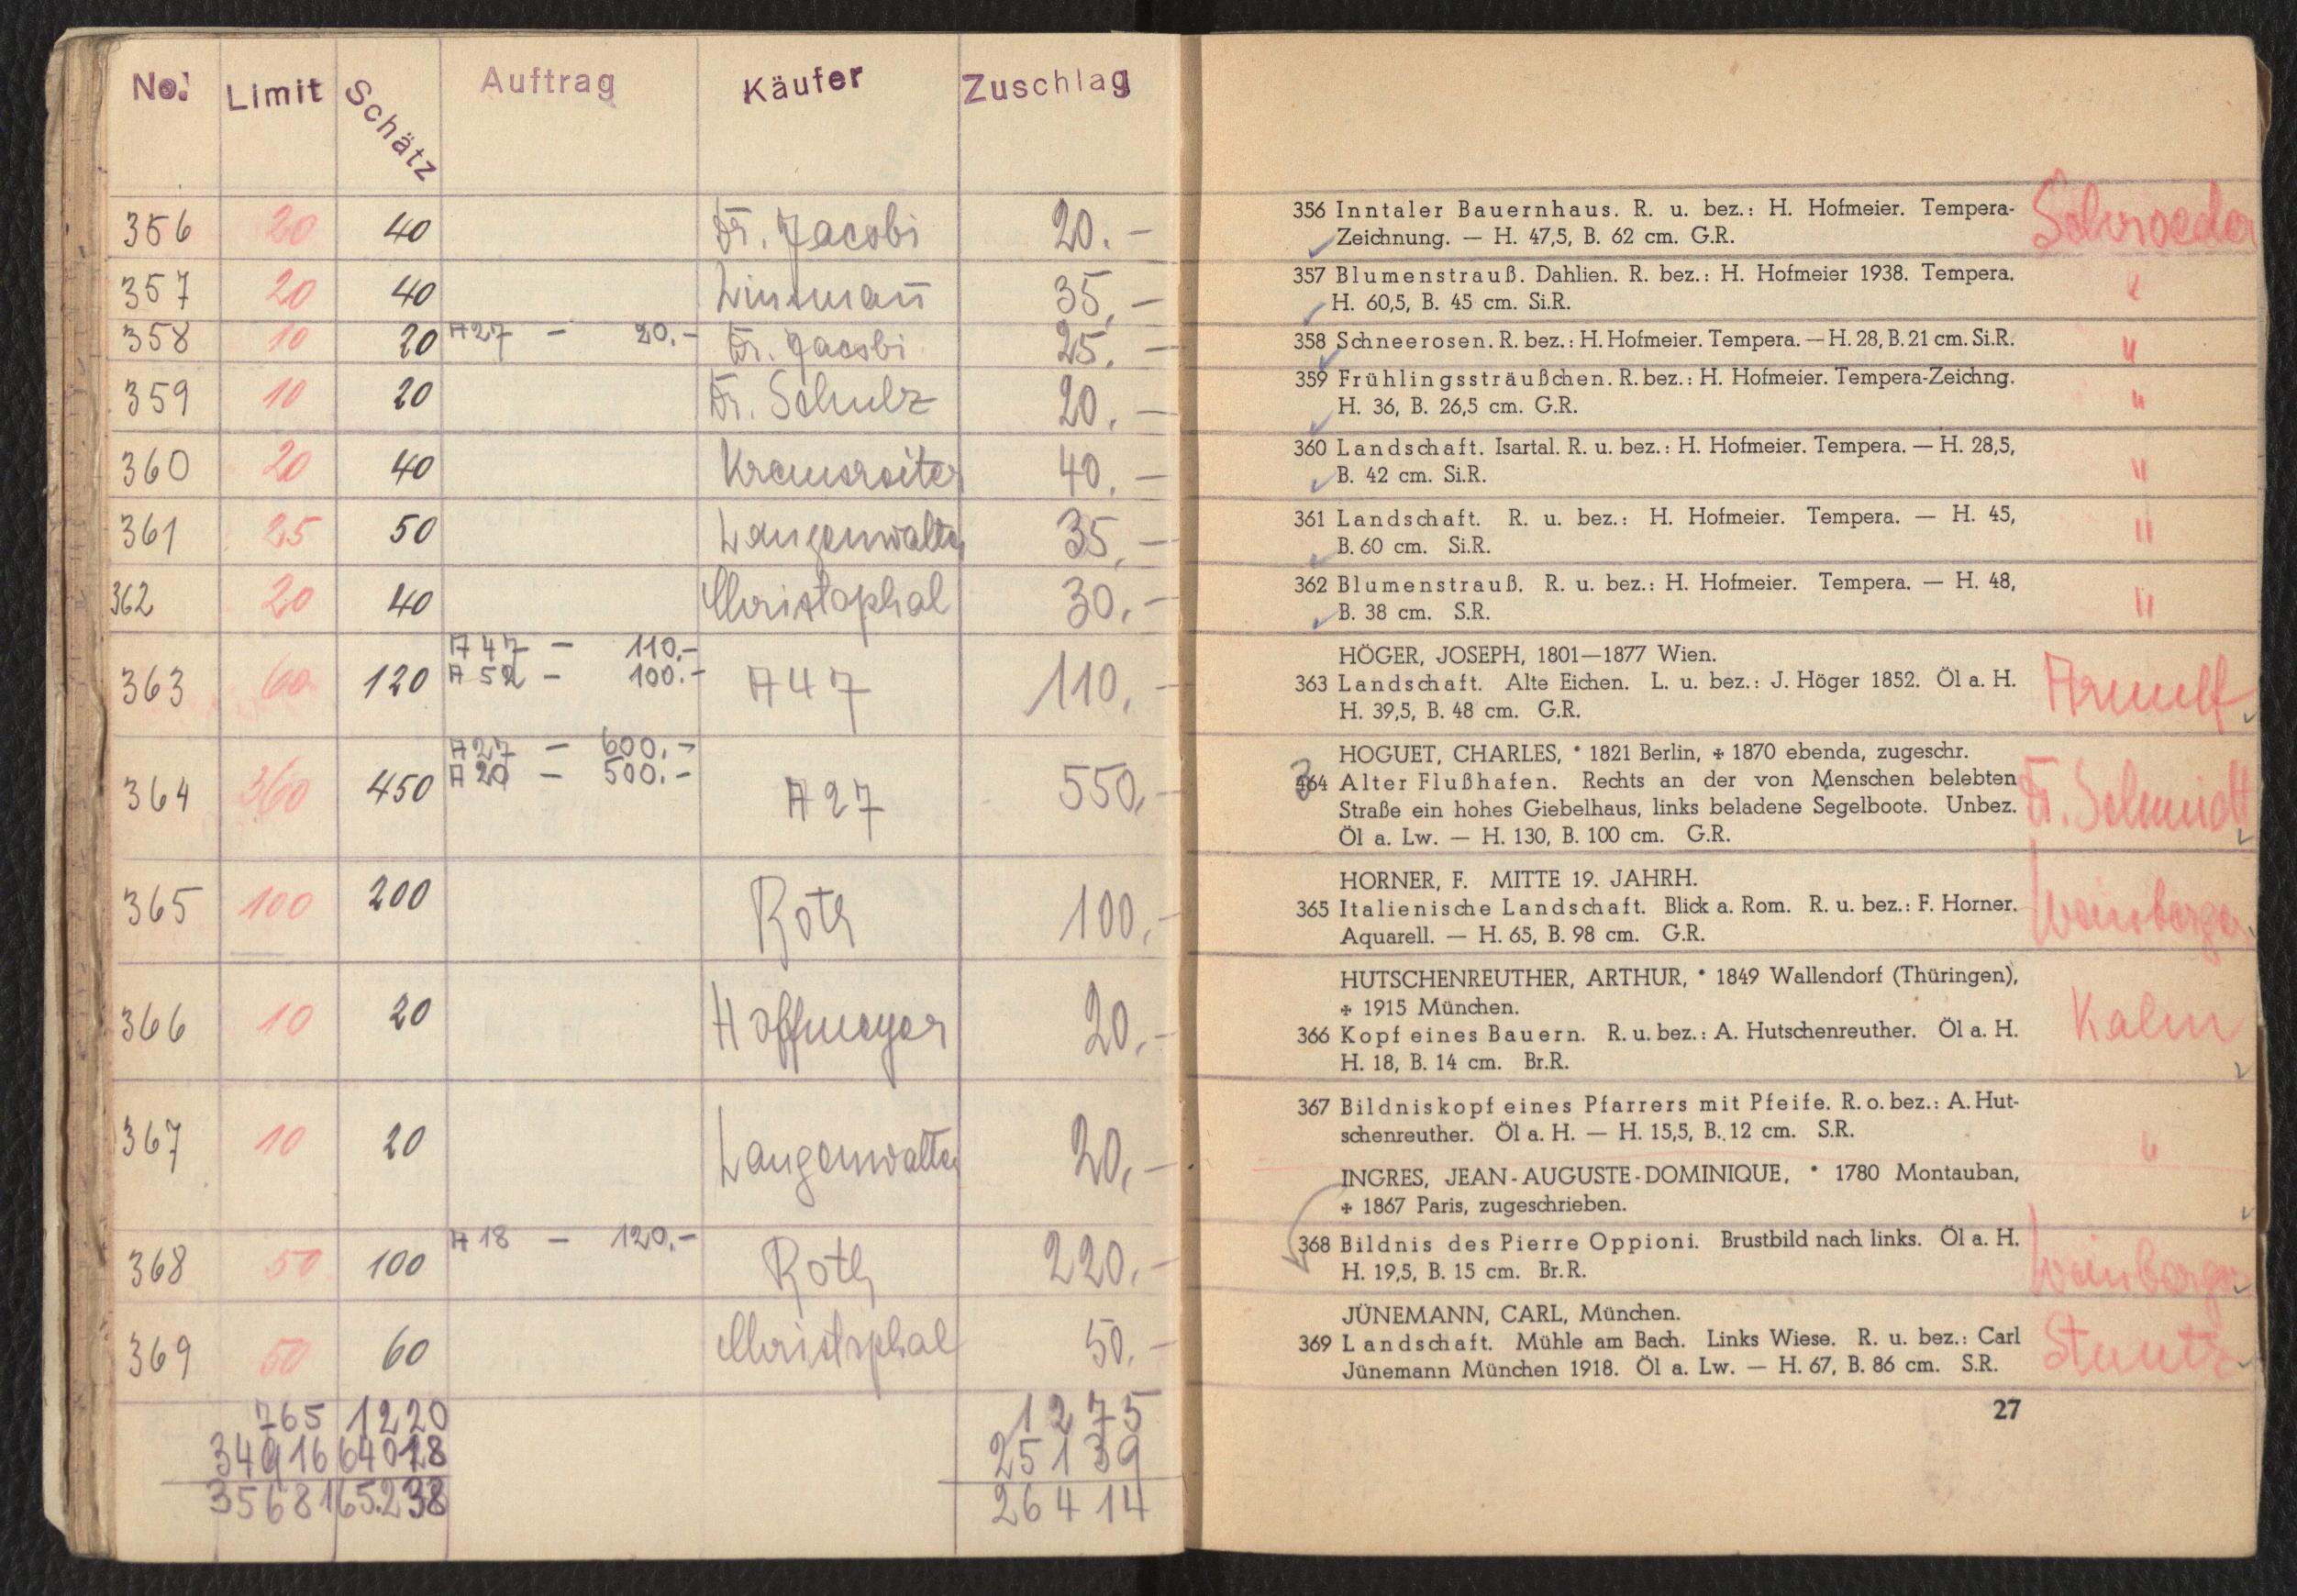 No. Limit Schätz Auftrag Käufer Zuschlag
356 20 40 Dr. Jacobi 20.-
357 20 40 35.-
358 10 20 A27 - 20.- Dr. Jacobi 25.-
359 10 20 Dr. Schulz 20.-
360 20 40 Kremsreiter 40.-
361 25 50 Langenwalter 35.-
362 20 40 Christophal 30.-
A47 - 110.-
363 60 120 A52 - 100.- A47 110.-
A27 - 600.-
364 360 450 A20 - 500.- A27 550.-
365 100 200 Roth 100.-
366 10 20 Hoffmeyer 20.-
367 10 20 Langenwalter 20.-
368 50 100 A18 - 120.- Roth 220.-
369 50 60 Christophal 50.-
765 1220 1275
34916 64018 25139
35681 65.238 26414
356 Inntaler Bauernhaus. R. u. bez.: H. Hofmeier. Tempera- Schroeder
Zeichnung. — H. 47,5, B. 62 cm. G.R.
357 Blumenstrauß. Dahlien. R. bez.: H. Hofmeier 1938. Tempera. "
H. 60,5, B. 45 cm. Si.R.
358 Schneerosen. R. bez.: H. Hofmeier. Tempera. — H. 28, B. 21 cm. Si.R. "
359 Frühlingssträußchen. R. bez.: H. Hofmeier. Tempera-Zeichng. "
H. 36, B. 26,5 cm. G.R.
360 Landschaft. Isartal. R. u. bez.: H. Hofmeier. Tempera. — H. 28,5, "
B. 42 cm. Si.R.
361 Landschaft. R. u. bez.: H. Hofmeier. Tempera. — H. 45, "
B. 60 cm. Si.R.
362 Blumenstrauß. R. u. bez.: H. Hofmeier. Tempera. — H. 48, "
B. 38 cm. S.R.
HÖGER, JOSEPH, 1801—1877 Wien.
363 Landschaft. Alte Eichen. L. u. bez.: J. Höger 1852. Öl a. H. Arnulf
H. 39,5, B. 48 cm. G.R.
HOGUET, CHARLES, * 1821 Berlin, ✠ 1870 ebenda, zugeschr.
364 Alter Flußhafen. Rechts an der von Menschen belebten Dr. Schmidt
Straße ein hohes Giebelhaus, links beladene Segelboote. Unbez.
Öl a. Lw. — H. 130, B. 100 cm. G.R.
HORNER, F. MITTE 19. JAHRH.
365 Italienische Landschaft. Blick a. Rom. R. u. bez.: F. Horner. Weinberger
Aquarell. — H. 65, B. 98 cm. G.R.
HUTSCHENREUTHER, ARTHUR, * 1849 Wallendorf (Thüringen),
✠ 1915 München.
366 Kopf eines Bauern. R. u. bez.: A. Hutschenreuther. Öl a. H. Kalm
H. 18, B. 14 cm. Br.R.
367 Bildniskopf eines Pfarrers mit Pfeife. R. o. bez.: A. Hut-
schenreuther. Öl a. H. — H. 15,5, B. 12 cm. S.R. "
INGRES, JEAN-AUGUSTE-DOMINIQUE, * 1780 Montauban,
✠ 1867 Paris, zugeschrieben.
368 Bildnis des Pierre Oppioni. Brustbild nach links. Öl a. H. Weinberger
H. 19,5, B. 15 cm. Br.R.
JÜNEMANN, CARL, München.
369 Landschaft. Mühle am Bach. Links Wiese. R. u. bez.: Carl Stuntz
Jünemann München 1918. Öl a. Lw. — H. 67, B. 86 cm. S.R.
27